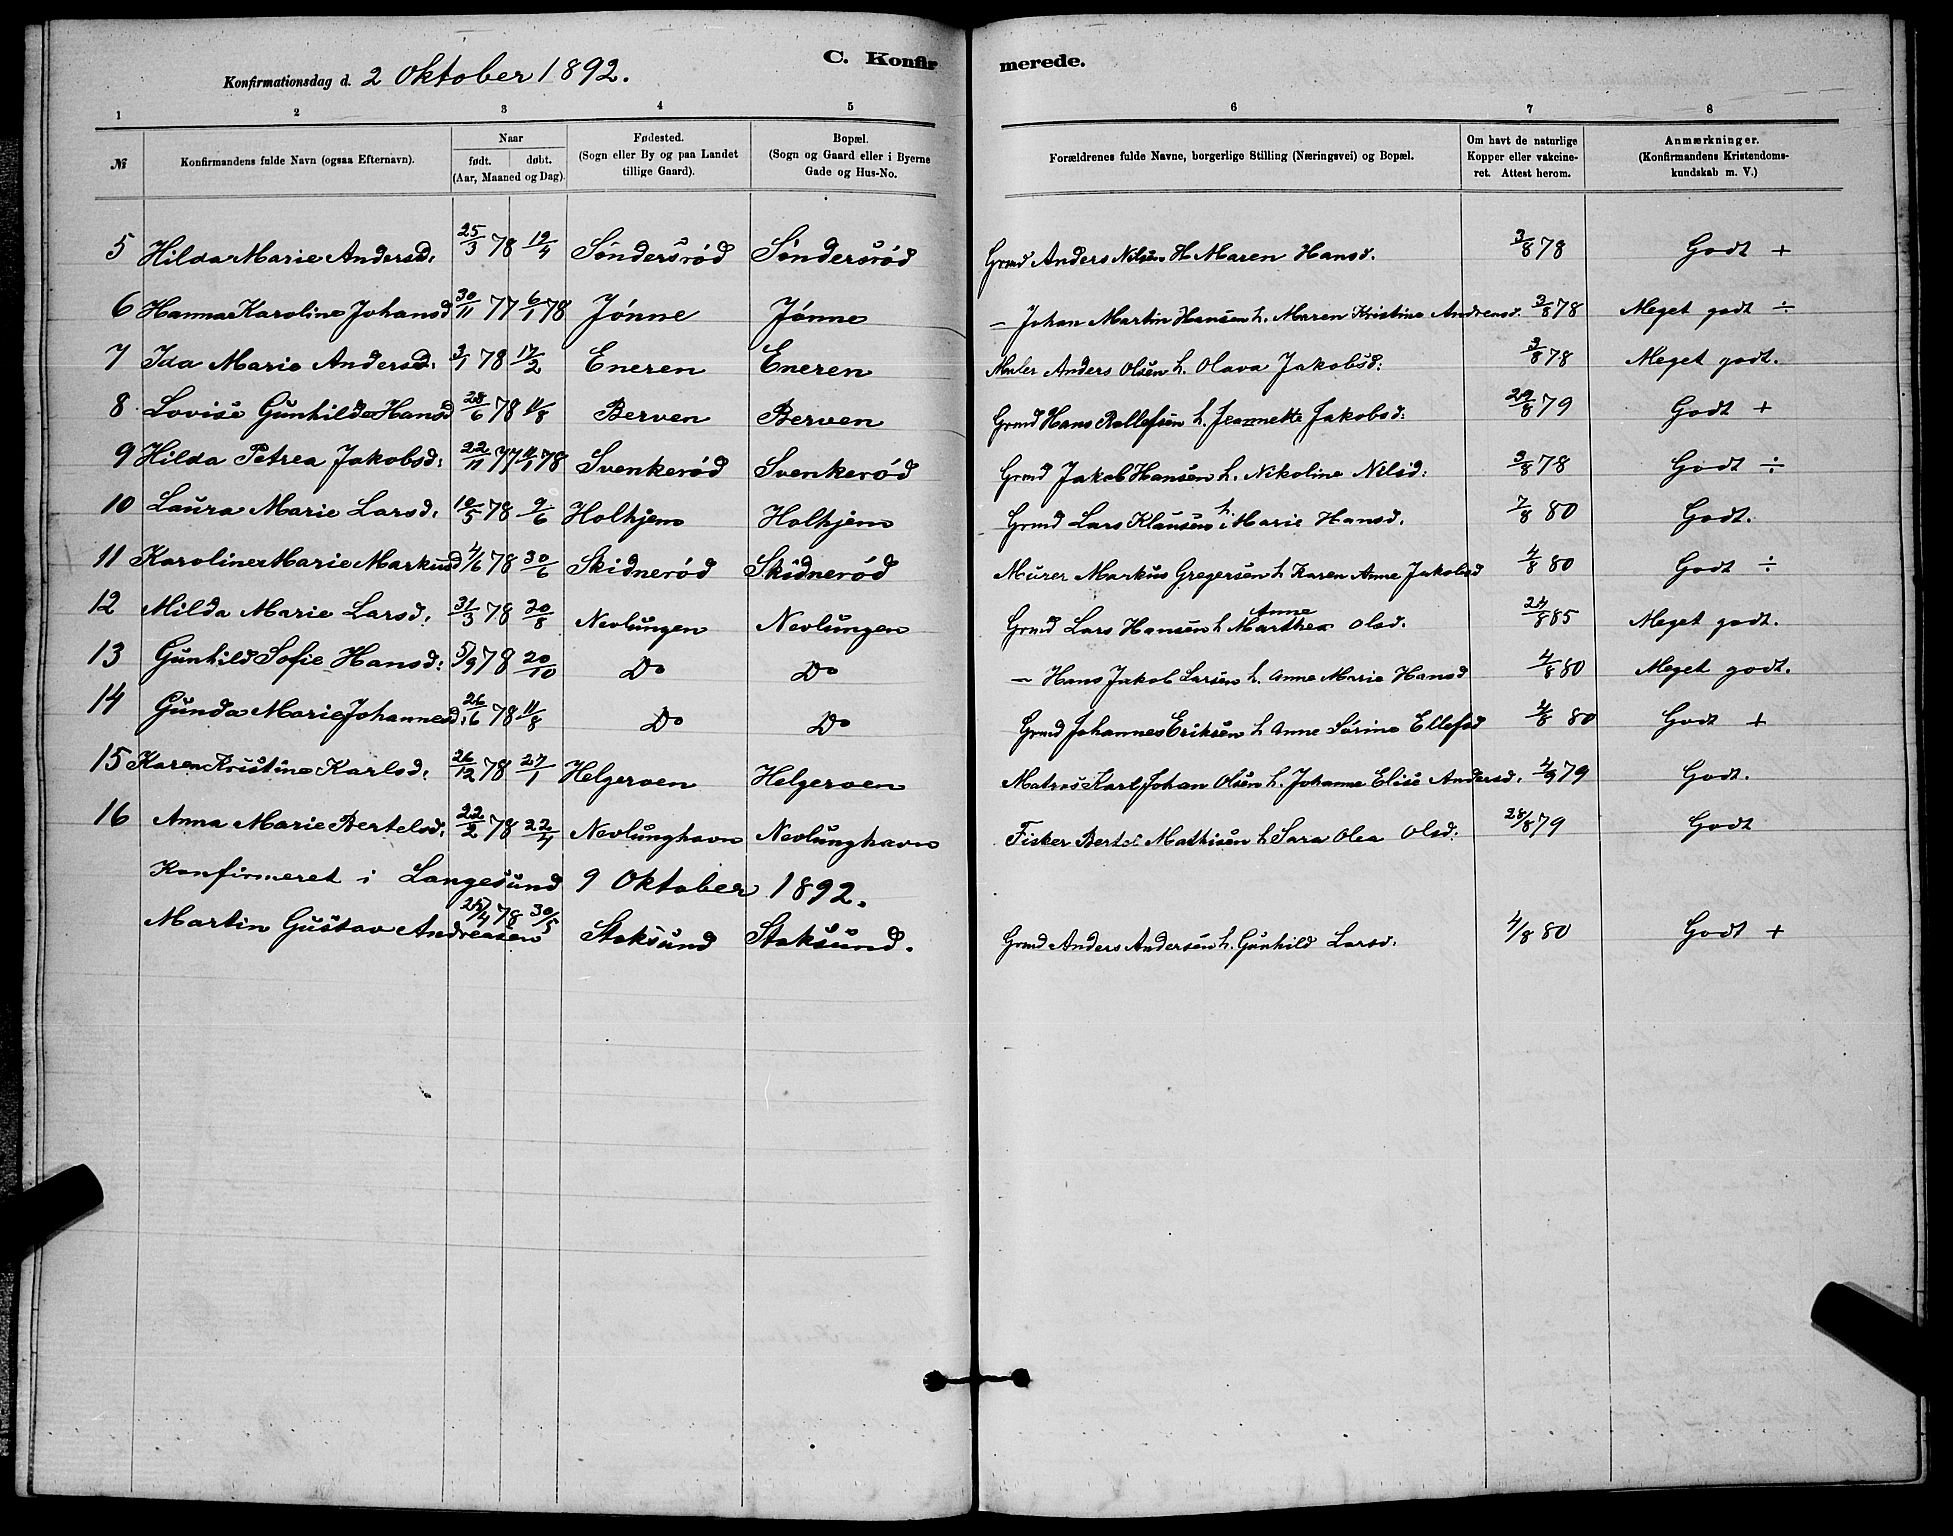 C. Konfirmerede.
Konfirmationsdag d. 2 Oktober 1892.
1 2 3 4 5 6 7 8
№ | Konfirmandens fulde Navn (ogsaa Efternavn). | Naar født. døbt. (Aar, Maaned og Dag). | Fødested. (Sogn eller By og paa Landet tillige Gaard). | Bopæl. (Sogn og Gaard eller i Byerne Gade og Hus-No. | Forældrenes fulde Navne, borgerlige Stilling (Næringsvei) og Bopæl. | Om havt de naturlige Kopper eller vakcineret. Attest herom. | Anmærkninger. (Konfirmandens Kristendomskundskab m. V.)
5 Hilda Marie Andersd: 25/3 78 19/4 Søndersrød Søndersrød Grmd Anders Nilsen H Maren Hansd. 3/8 78 Godt +
6 Hanna Karoline Johansd 30/11 77 6/1 78 Jønne Jønne — Johan Martin Hansen h. Maren Kristine Andreasd. 3/8 78 Meget godt ÷
7 Ida Marie Andersd: 3/1 78 17/2 Eneren Eneren Maler Anders Olsen h. Olava Jakobsd: 3/8 78 Meget godt.
8 Lovise Gunhilda Hansd 28/6 78 11/8 Berven Berven Grmd Hans Rollefsen h. Jeannette Jakobsd: 29/8 79 Godt +
9 Hilda Petrea Jakobsd: 22/11 77 /1 78 Svenkerød Svenkerød Grmd Jakob Hansen h. Nikoline Nilsd: 3/8 78 Godt ÷
10 Laura Marie Larsd: 10/5 78 9/6 Holtjem Holtjem Grmd Lars Klausen h. Marie Hansd. 7/8 80 Godt.
11 Karoline Marie Markusd 4/6 78 30/6 Skidnerød Skidnerød Murer Markus Gregersen h Karen Anne Jakobsd 4/8 80 Godt ÷
12 Milda Marie Larsd: 31/3 78 20/8 Nevlungen Nevlungen Grmd Lars Hansen h Anne Marthea Olsd. 24/8 85 Meget godt.
13 Gunhild Sofie Hansd: 5/9 78 20/10 Do Do — Hans Jakob Larsen h. Anne Marie Hansd 4/8 80 Meget godt.
14 Gunda Marie Johannesd: 26/6 78 11/8 Do Do Grmd Johannes Eriksen h Anne Sørine Ellefsd 4/8 80 Godt +
15 Karen Kristine Karlsd: 26/12 78 27/1 Helgeroen Helgeroen Matros Karl Johan Olsen h. Johanne Elise Andersd. 4/9 79 Godt.
16 Anna Marie Bertelsd: 22/2 78 22/4 Nevlunghavn Nevlunghavn Fisker Bertel Mathisen h Sara Olea Olsd: 28/8 79 Godt
Konfirmeret i Langesund 9 Oktober 1892.
Martin Gustav Andreasen 25/4 78 30/5 Stoksund Stoksund. Grmd Anders Andersen h. Gunhild Larsd. 4/8 80 Godt +